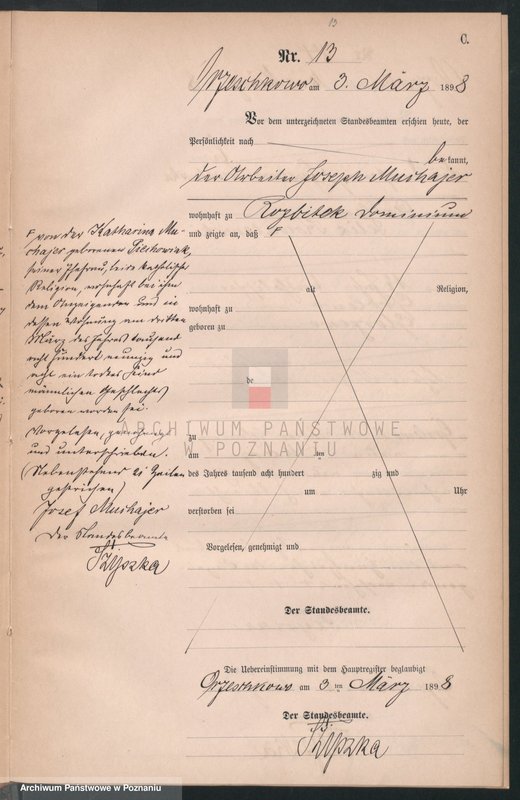 13
C.
Nr. 13
Orzeschkowo am 3. März 1898
Vor dem unterzeichneten Standesbeamten erschien heute, der
Persönlichkeit nach
bekannt,
der Arbeiter Joseph Muihajer
wohnhaft zu Rozbitek Dominium
und zeigte an, daß F
F von der Katharina Mu-
hajer geborenen Piechowiak,
seiner Ehefrau, beide katholischer
Religion, wohnhaft bei ihm
dem Anzeigenden und in
dessen Wohnung am dritten
März des Jahres tausend
acht hundert neunzig und
acht ein todtes Kind
männlichen Geschlechts
geboren worden sei.
Vorgelesen, genehmigt
und unterschrieben.
(Nebenstehend 21 Zeilen
gestrichen)
Josef Muihajer
Der Standesbeamte
Szyszka
alt Religion,
wohnhaft zu
geboren zu
de
ARCHIWUM PAŃSTWOWE
W POZNANIU
zu
am ten
des Jahres tausend acht hundert zig und
um Uhr
verstorben sei
Vorgelesen, genehmigt und
Der Standesbeamte.
Die Uebereinstimmung mit dem Hauptregister beglaubigt
Orzeschkowo am 3 ten März 1898
Der Standesbeamte.
Szyszka
Archiwum Państwowe w Poznaniu